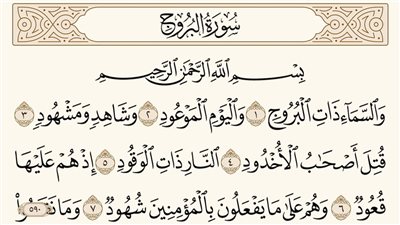 سُورَةُ البُرُوجِ
بِسْمِ اللَّهِ الرَّحْمَٰنِ الرَّحِيمِ
وَالسَّمَآءِ ذَاتِ الْبُرُوجِ ١ وَالْيَوْمِ الْمَوْعُودِ ٢ وَشَاهِدٍ وَمَشْهُودٍ ٣
قُتِلَ أَصْحَابُ الْأُخْدُودِ ٤ النَّارِ ذَاتِ الْوَقُودِ ٥ إِذْ هُمْ عَلَيْهَا
قُعُودٌ ٦ وَهُمْ عَلَىٰ مَا يَفْعَلُونَ بِالْمُؤْمِنِينَ شُهُودٌ ٧ وَمَا نَقَمُوا
٥٩٠